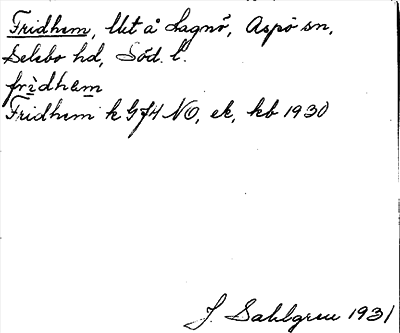 Fridhem, lht å Lagnö, Aspö sn,
Selebo hd, Söd. l.
fridhem
Fridhem k 9J4 NO, ek, kb 1930
J. Sahlgren 1931